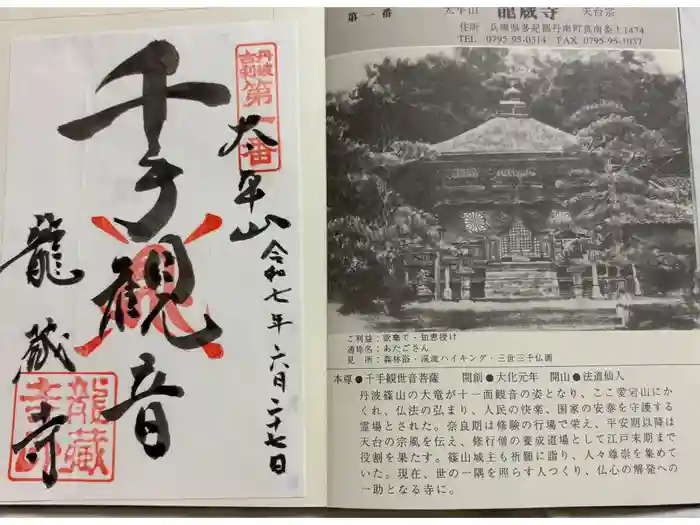 丹波
古刹
第一番
太平山
令和七年六月二十七日
千手観音
龍蔵寺
龍蔵
寺
第一番 太平山 龍蔵寺 天台宗
住所 兵庫県多紀郡丹南町真南条上1474
TEL 0795-95-0314 FAX 0795-95-1037
ご利益:欲棄て・知恵授け
通称名:あたごさん
見所:森林浴・渓流ハイキング・三世三千仏画
本尊●千手観世音菩薩 開創●大化元年 開山●法道仙人
丹波篠山の大竜が十一面観音の姿となり、ここ愛宕山にか
くれ、仏法の弘まり、人民の快楽、国家の安泰を守護する
霊場とされた。奈良期は修験の行場で栄え、平安期以降は
天台の宗風を伝え、修行僧の養成道場として江戸末期まで
役割を果たす。篠山城主も祈願に詣り、人々尊崇を集めて
いた。現在、世の一隅を照らす人つくり、仏心の解発への
一助となる寺に。